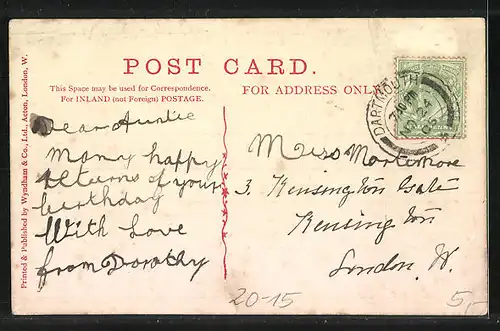 POST CARD.
This Space may be used for Correspondence.
For INLAND (not Foreign) POSTAGE.
FOR ADDRESS ONLY
Printed & Published by Wyndham & Co., Ltd., Acton, London, W.
Dear Auntie
Many happy
returns of your
birthday
With Love
from Dorothy
DARTMOUTH
24
Miss Mortimore
3. Kensington Gate
Kensington
London. W.
20-15
5,-